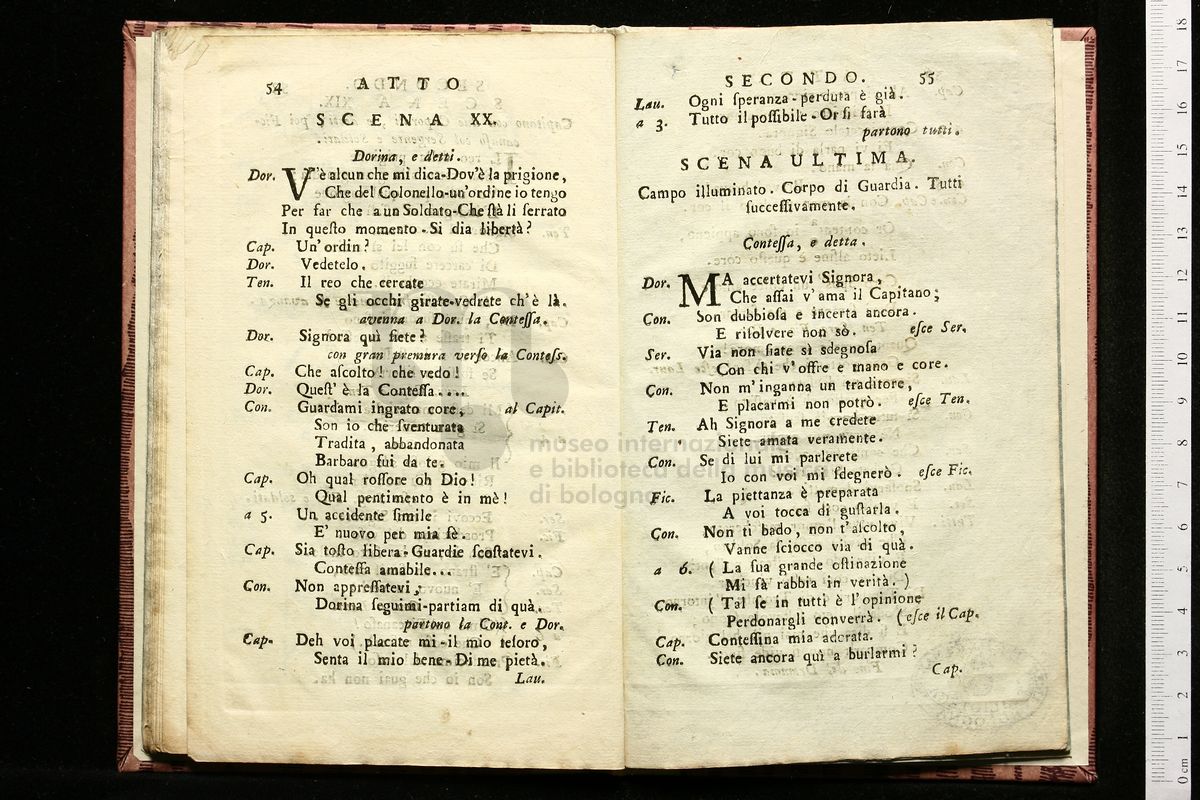 54 ATTO
SCENA XX.
Dorina, e detti.
Dor. V'è alcun che mi dica-Dov'è la prigione,
Che del Colonello-un'ordine io tengo
Per far che a un Soldato-Che stà li serrato
In questo momento-Si dia libertà?
Cap. Un' ordin?
Dor. Vedetelo.
Ten. Il reo che cercate
Se gli occhi girate-vedrete ch'è là.
avenna a Dor. la Contessa.
Dor. Signora quì siete?
con gran premura verso la Contess.
Cap. Che ascolto! che vedo!
Dor. Quest' è la Contessa....
Con. Guardami ingrato core, al Capit.
Son io che sventurata
Tradita, abbandonata
Barbaro fui da te.
Cap. Oh qual rossore oh Dio!
Qual pentimento è in mè!
a 5. Un accidente simile
E' nuovo per mia fè.
Cap. Sia tosto libera-Guardie scostatevi.
Contessa amabile...
Con. Non appressatevi,
Dorina seguimi-partiam di quà.
partono la Cont. e Dor.
Cap. Deh voi placate mi-il mio tesoro,
Senta il mio bene-Di me pietà.
Lau.
SECONDO. 55
Lau. Ogni speranza-perduta è già.
a 3. Tutto il possibile-Or si farà
partono tutti.
SCENA ULTIMA.
Campo illuminato. Corpo di Guardia. Tutti
successivamente.
Contessa, e detta.
Dor. MA accertatevi Signora,
Che assai v'ama il Capitano;
Con. Son dubbiosa e incerta ancora.
E risolvere non sò. esce Ser.
Ser. Via non siate sì sdegnosa
Con chi v'offre e mano e core.
Con. Non m'inganna un traditore,
E placarmi non potrò. esce Ten.
Ten. Ah Signora a me credete
Siete amata veramente.
Con. Se di lui mi parlerete
Io con voi mi sdegnerò. esce Fic.
Fic. La piettanza è preparata
A voi tocca di gustarla.
Con. Non ti bado, non t'ascolto,
Vanne sciocco via di quà.
a 6. ( La sua grande ostinazione
Mi fà rabbia in verità. )
Con. ( Tal se in tutti è l'opinione
Perdonargli converrà. (esce il Cap.
Cap. Contessina mia adorata.
Con. Siete ancora quì a burlarmi?
Cap.
museo internazionale
e biblioteca della musica
di bologna